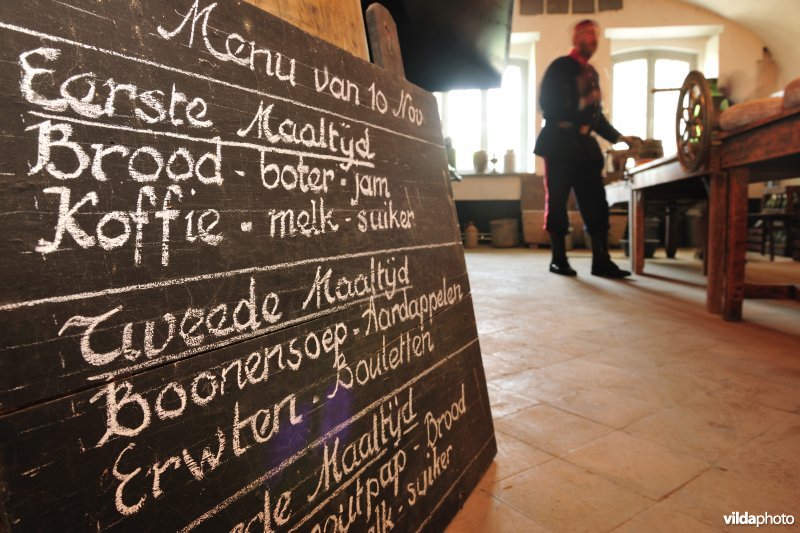 Menu van 10 Nov
Eerste Maaltijd
Brood - boter - jam
Koffie - melk - suiker
Tweede Maaltijd
Boonensoep - Aardappelen
Erwten - Bouletten
Maaltijd
Brood
suiker
vildaphoto